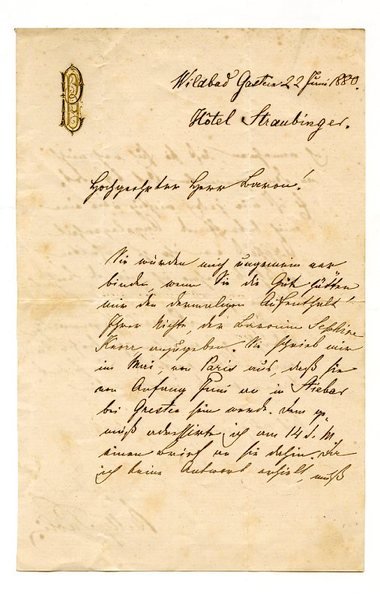 Wildbad Gastein 22 Juni 1880.
Hôtel Straubinger.
Hochgeehrter Herr Baron!
Sie würden mich ungemein ver
binden, wenn Sie die Güte hätten
mir den dermaligen Aufenthalt
Ihrer Nichte, der Baronin
anzugeben. Sie schrieb mir
im Mai, von Paris aus, daß sie
von Anfang Juni an in Stiebar
bei Gresten sein werde. Dem ge
mäß adressirte ich am 14 d. M.
einen Brief an sie dahin. Da
ich keine Antwort erhielt, muß